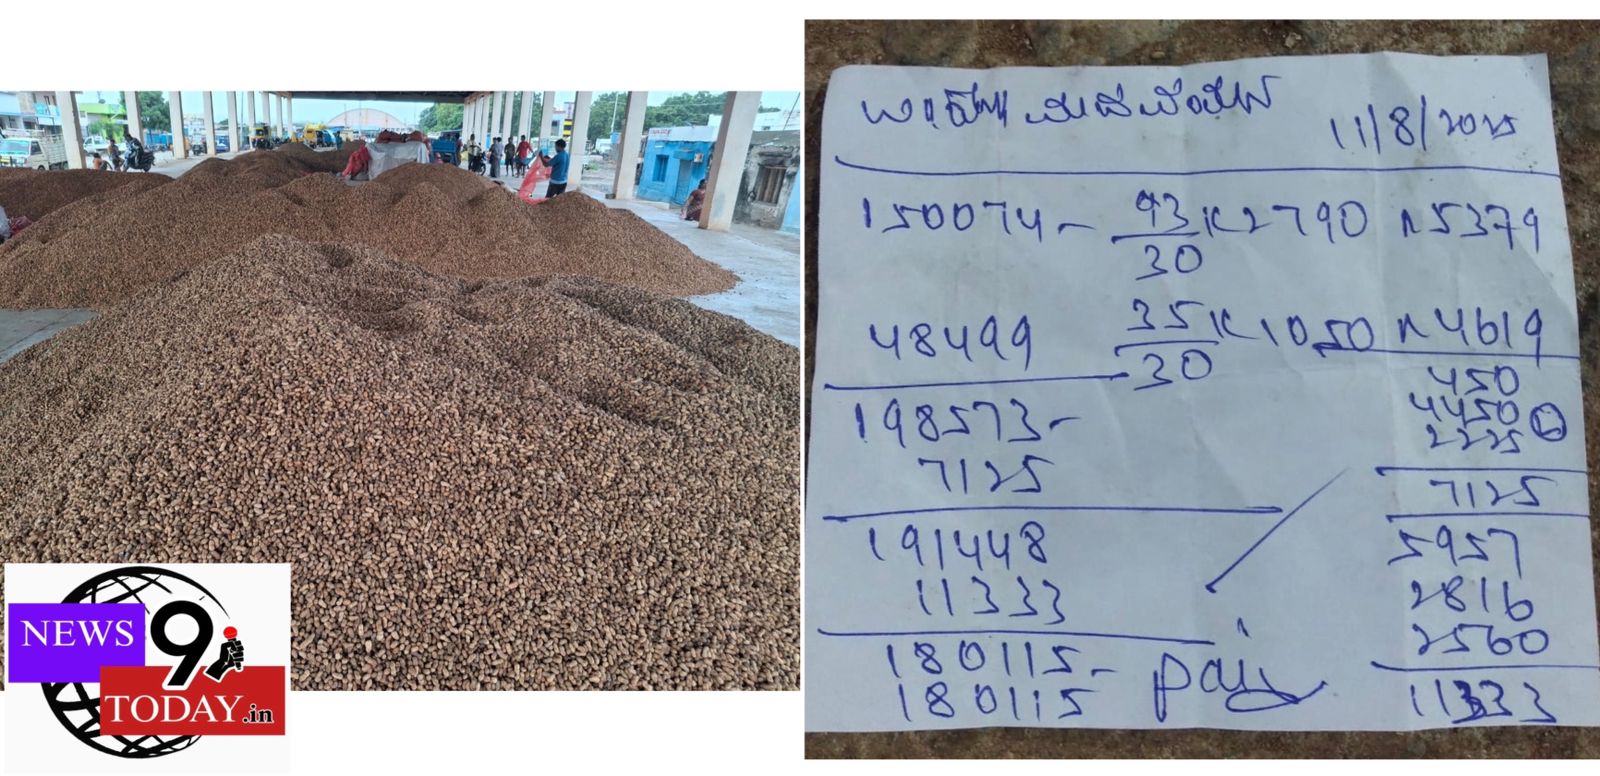 NEWS 9
TODAY.in
11/8/2025
150074 - 93/30 K 2790 5379
48499 35/30 K 1050 4619
450
198573 - 4450
2225
7125 7125
191448 5957
11333 2816
2560
180115 - 11333
180115 paid